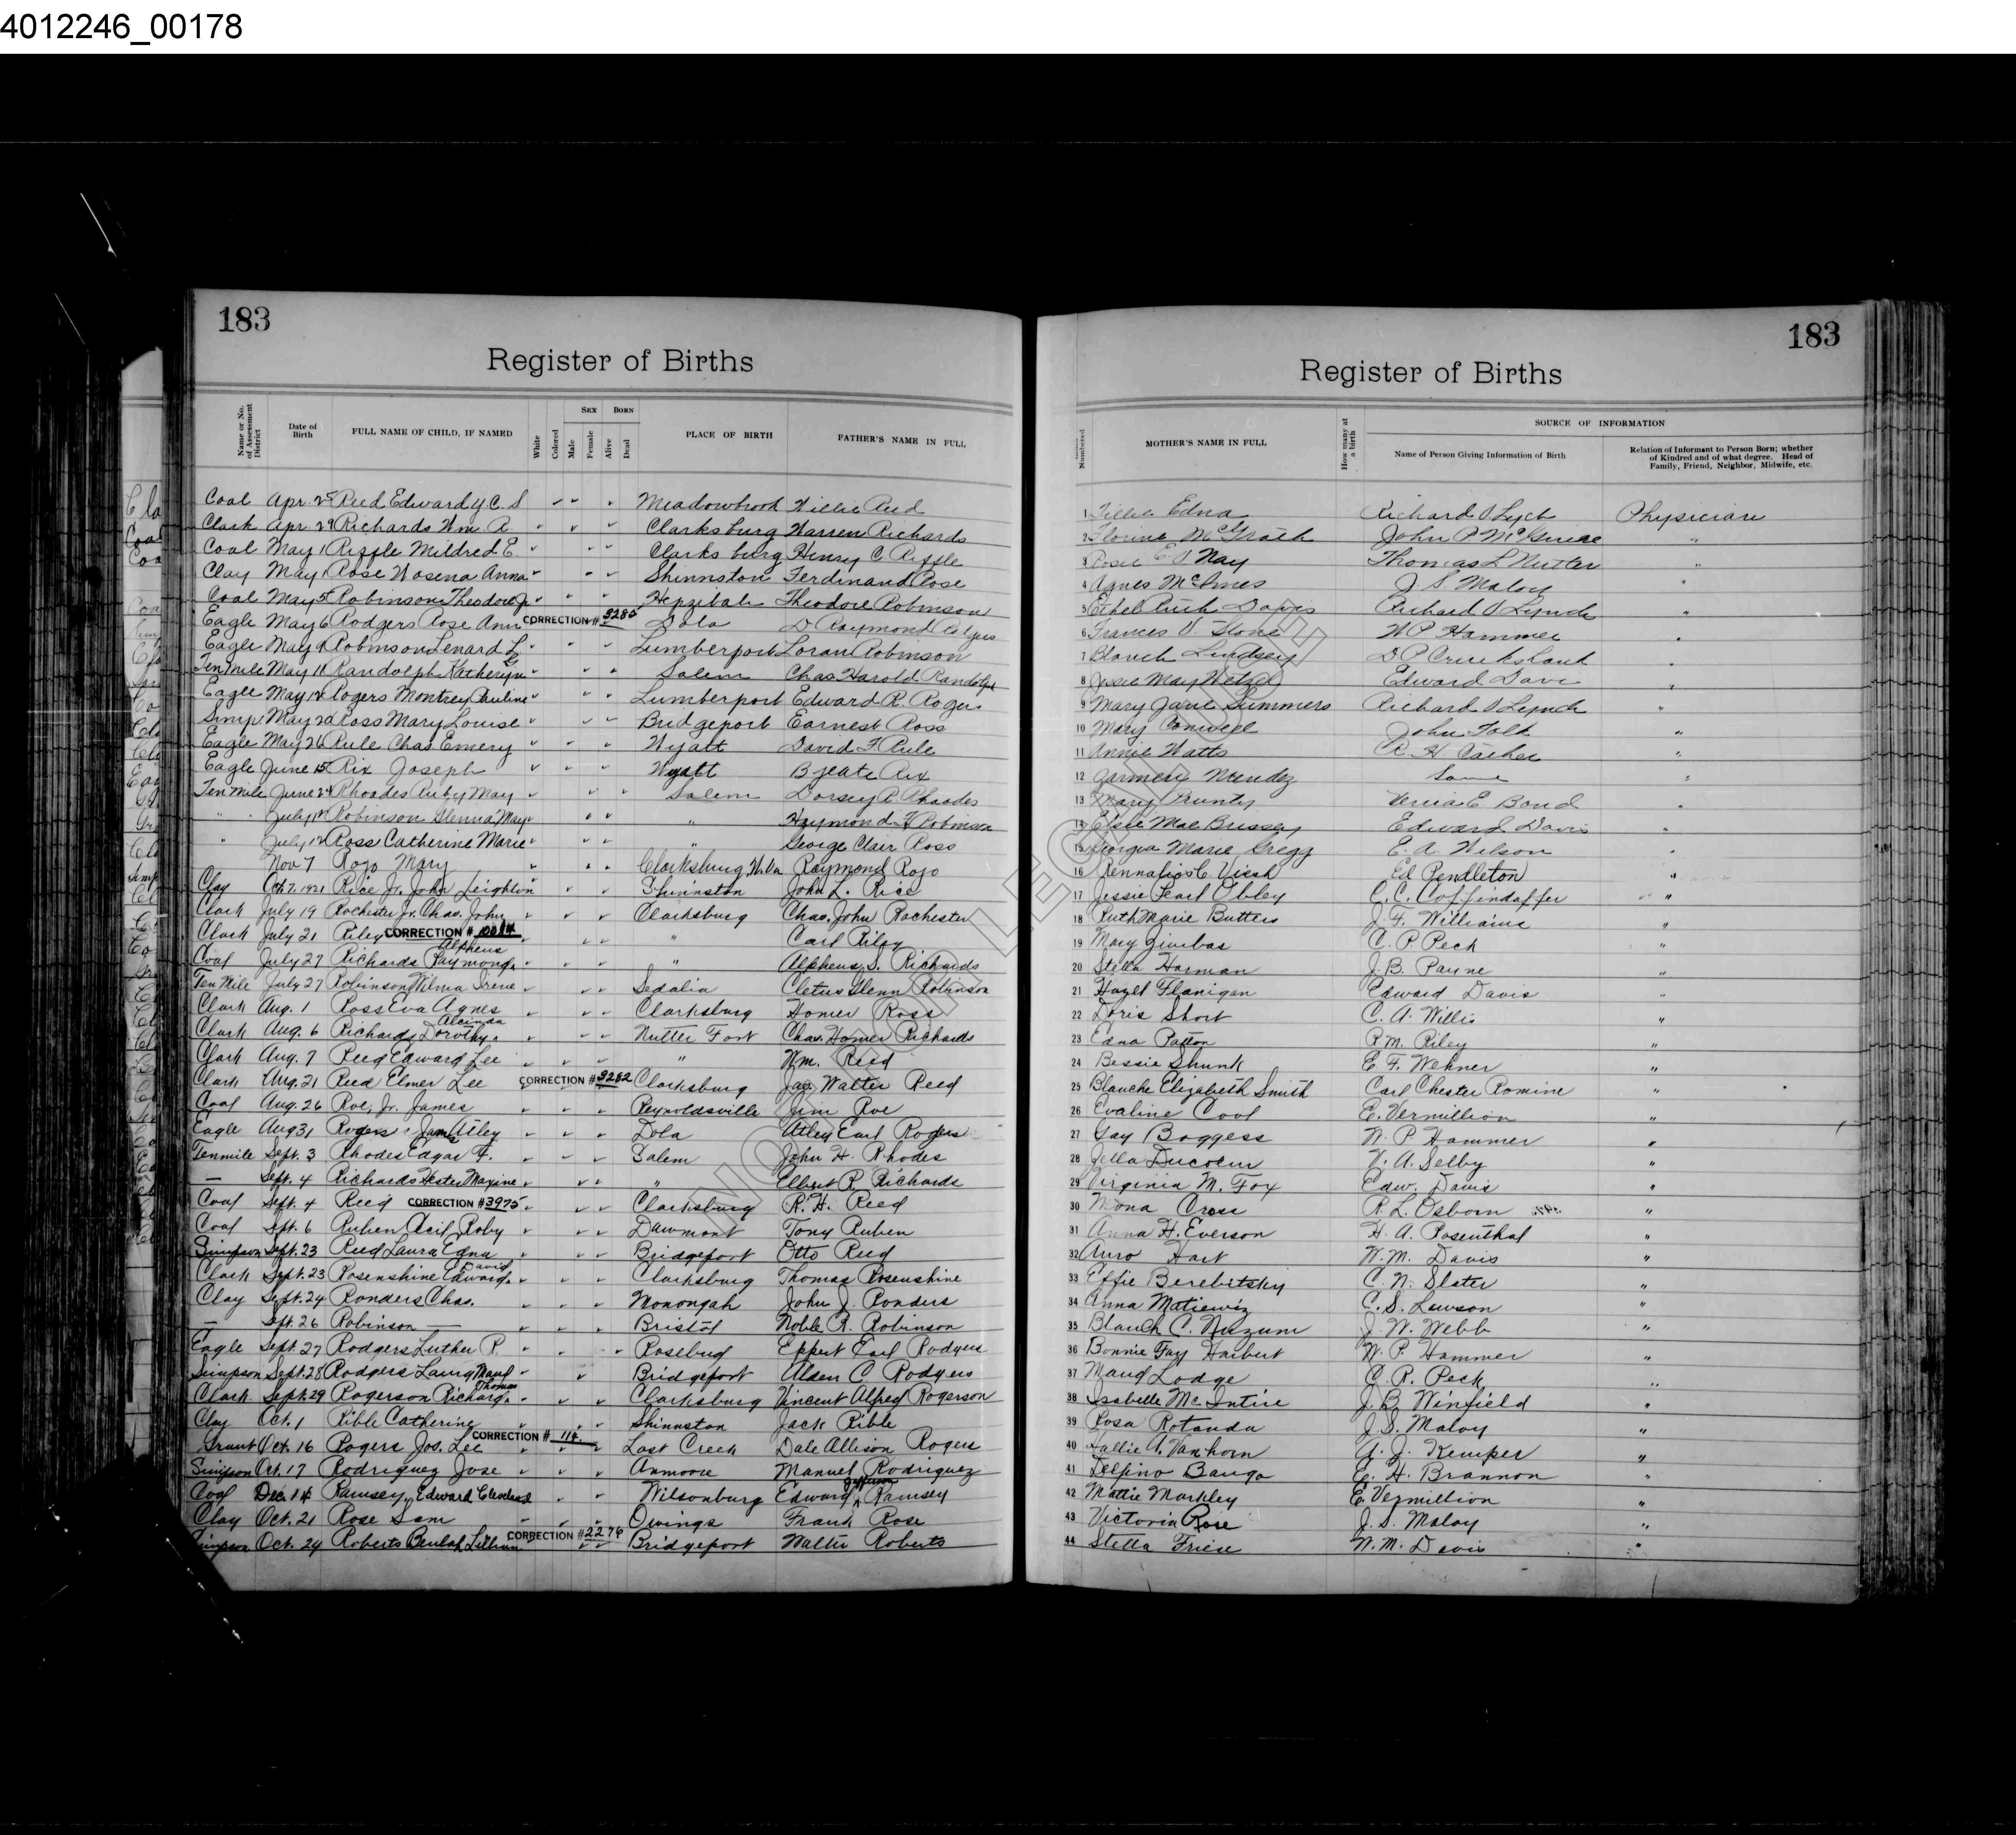 4012246_00178
183
Register of Births
Name or No. of Assessment District
Date of Birth
FULL NAME OF CHILD, IF NAMED
White
Colored
SEX
Male
Female
BORN
Alive
Dead
PLACE OF BIRTH
FATHER'S NAME IN FULL
Coal Apr. 25 Reed Edward Meadowbrook Willie Reed
Clark Apr. 29 Richards Wm. A. Clarksburg Warren Richards
Coal May 1 Riffle Mildred E. Clarksburg Henry C. Riffle
Clay May 1 Rose Wosena Anna Shinnston Ferdinand Rose
Coal May 5 Robinson Theodore Jr Hepzibah Theodore Robinson
Eagle May 6 Rodgers Rose Ann CORRECTION # 3285 Dola D Raymond Rodgers
Eagle May 9 Robinson Lenard L. Lumberport Loran Robinson
Ten mile May 11 Randolph Katheryn Salem Chas Harold Randolph
Eagle May 12 Rogers Montrey Pauline Lumberport Edward R. Rogers
Simp. May 20 Ross Mary Louise Bridgeport Earnest Ross
Eagle May 26 Rule Chas Emery Wyatt David F Rule
Eagle June 15 Rix Joseph Wyatt Rix
Ten Mile June 24 Rhoades Ruby May Salem Dorsey R. Rhoades
" " July 1 Robinson Glenna May " Haymond Robinson
" July 12 Ross Catherine Marie " George Clair Ross
Nov 7 Rojo Mary Clarksburg, W. Va Raymond Rojo
Clay Oct. 7, 1921 Rice Jr. John Leighton Shinnston John L. Rice
Clark July 19 Rochester Jr. Chas. John Clarksburg Chas. John Rochester
Clark July 21 Riley CORRECTION # " Carl Riley
Coal July 27 Richards Raymond Alpheus " Alpheus S. Richards
Ten Mile July 27 Robinson Wilma Irene Sedalia Cletus Glenn Robinson
Clark Aug. 1 Ross Eva Agnes Clarksburg Homer Ross
Clark Aug. 6 Richards Dorothy Alcinda Nutter Fort Chas. Homer Richards
Clark Aug. 7 Reed Edward Lee " Wm. Reed
Clark Aug. 21 Reed Elmer Lee CORRECTION # 3282 Clarksburg Jas. Walter Reed
Coal Aug. 26 Roe, Jr. James Reynoldsville Jim Roe
Eagle Aug 31 Rogers James Atley Dola Atley Earl Rogers
Tenmile Sept. 3 Rhodes Edgar F. Salem John H. Rhodes
— Sept. 4 Richards Hester Maxine " Elbert R. Richards
Coal Sept. 4 Reed CORRECTION # 3975 Clarksburg R. H. Reed
Coal Sept. 6 Ruben Roby Dawmont Tony Ruben
Simpson Sept. 23 Reed Laura Edna Bridgeport Otto Reed
Clark Sept. 23 Rosenshine Edward David Clarksburg Thomas Rosenshine
Clay Sept. 24 Ronders Chas. Monongah John J. Ronders
— Sept. 26 Robinson — Bristol Noble R. Robinson
Eagle Sept. 27 Rodgers Luther P. Rosebud Eppert Earl Rodgers
Simpson Sept. 28 Rodgers Maud Bridgeport Alden C Rodgers
Clark Sept. 29 Rogerson Richard Thomas Clarksburg Vincent Alfred Rogerson
Clay Oct. 1 Rible Catherine Shinnston Jack Rible
Grant Oct. 16 Rogers Jos. Lee CORRECTION # 114 Lost Creek Dale Allison Rogers
Simpson Oct. 17 Rodriquez Jose Anmoore Manuel Rodriquez
Coal Dec. 14 Ramsey, Edward Cleveland Wilsonburg Edward Jefferson Ramsey
Clay Oct. 21 Rose Sam Owings Frank Rose
Simpson Oct. 24 Roberts Beulah Lillian CORRECTION # 2276 Bridgeport Walter Roberts
183
Register of Births
Numbered
MOTHER'S NAME IN FULL
How many at a birth
SOURCE OF INFORMATION
Name of Person Giving Information of Birth
Relation of Informant to Person Born; whether of Kindred and of what degree. Head of Family, Friend, Neighbor, Midwife, etc.
1 Tillie Edna Richard Physician
2 Florine McGrath John P McGuire "
3 Rosie E Nay Thomas L Nutter "
4 Agnes McInnes J. S. Maloy "
5 Ethel Ruth Davis Richard Lynch "
6 Frances V. Stone W P Hammer "
7 Blanch Lindsey D. P Cruikshank "
8 Jessie May Wetzel Edward Davis "
9 Mary Jane Summers Richard Lynch "
10 Mary Conwell John Folk "
11 Annie Watts C. H "
12 Mendez Same "
13 Mary Prunty Bond "
14 Elsie Mae Brissey Edward Davis "
15 Georgia Marie Gregg E. A. Wilson "
16 Ed Pendleton "
17 Jessie Pearl Obley C. C. Coffindaffer "
18 Ruth Marie Butters J. F. Williams "
19 Mary C. R Peck "
20 Stella Harman J. B. Payne "
21 Hazel Flanigan Edward Davis "
22 Doris Short C. A. Willis "
23 Edna Patton R. M. Riley "
24 Bessie Shunk E. F. Wehner "
25 Blanche Elizabeth Smith Carl Chester Romine "
26 Evaline Cool E. Vermillion "
27 Gay Boggess W. P. Hammer "
28 Zella Ducoeur V. A. Selby "
29 Virginia M. Fox Edw. Davis "
30 Mona Cross R. L. Osborn "
31 Anna H. Everson H. A. Rosenthal "
32 Auro Hart W. M. Davis "
33 Effie Berebitsky C. N. Slater "
34 Anna Matiewiz C. S. Lawson "
35 Blanch C. Nuzum J. W. Webb "
36 Bonnie Fay Harbert W. P. Hammer "
37 Maud Lodge C. R. Peck "
38 Isabelle McIntire J. B. Winfield "
39 Rosa Rotanda J. S. Maloy "
40 Hallie A. Vanhorn A. J. Kemper "
41 Delfino Banga E. H. Brannon "
42 Mattie Markley E. Vermillion "
43 Victoria Rose J. S. Maloy "
44 Stella Friese W. M. Davis "